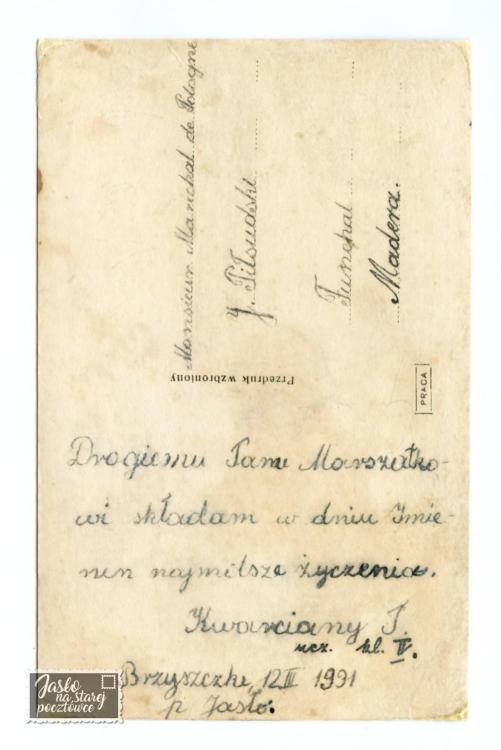 Monsieur Marechal de Pologne
J. Piłsudski
Funchal
Madera.
Przedruk wzbroniony
PRACA
Drogiemu Panu Marszałko-
wi składam w dniu Imie-
nin najmilsze życzenia.
Kwarciany J.
ucz. kl. IV.
Brzyszczki, 12 III 1931
p Jasło.
Jasło
na starej
pocztówce